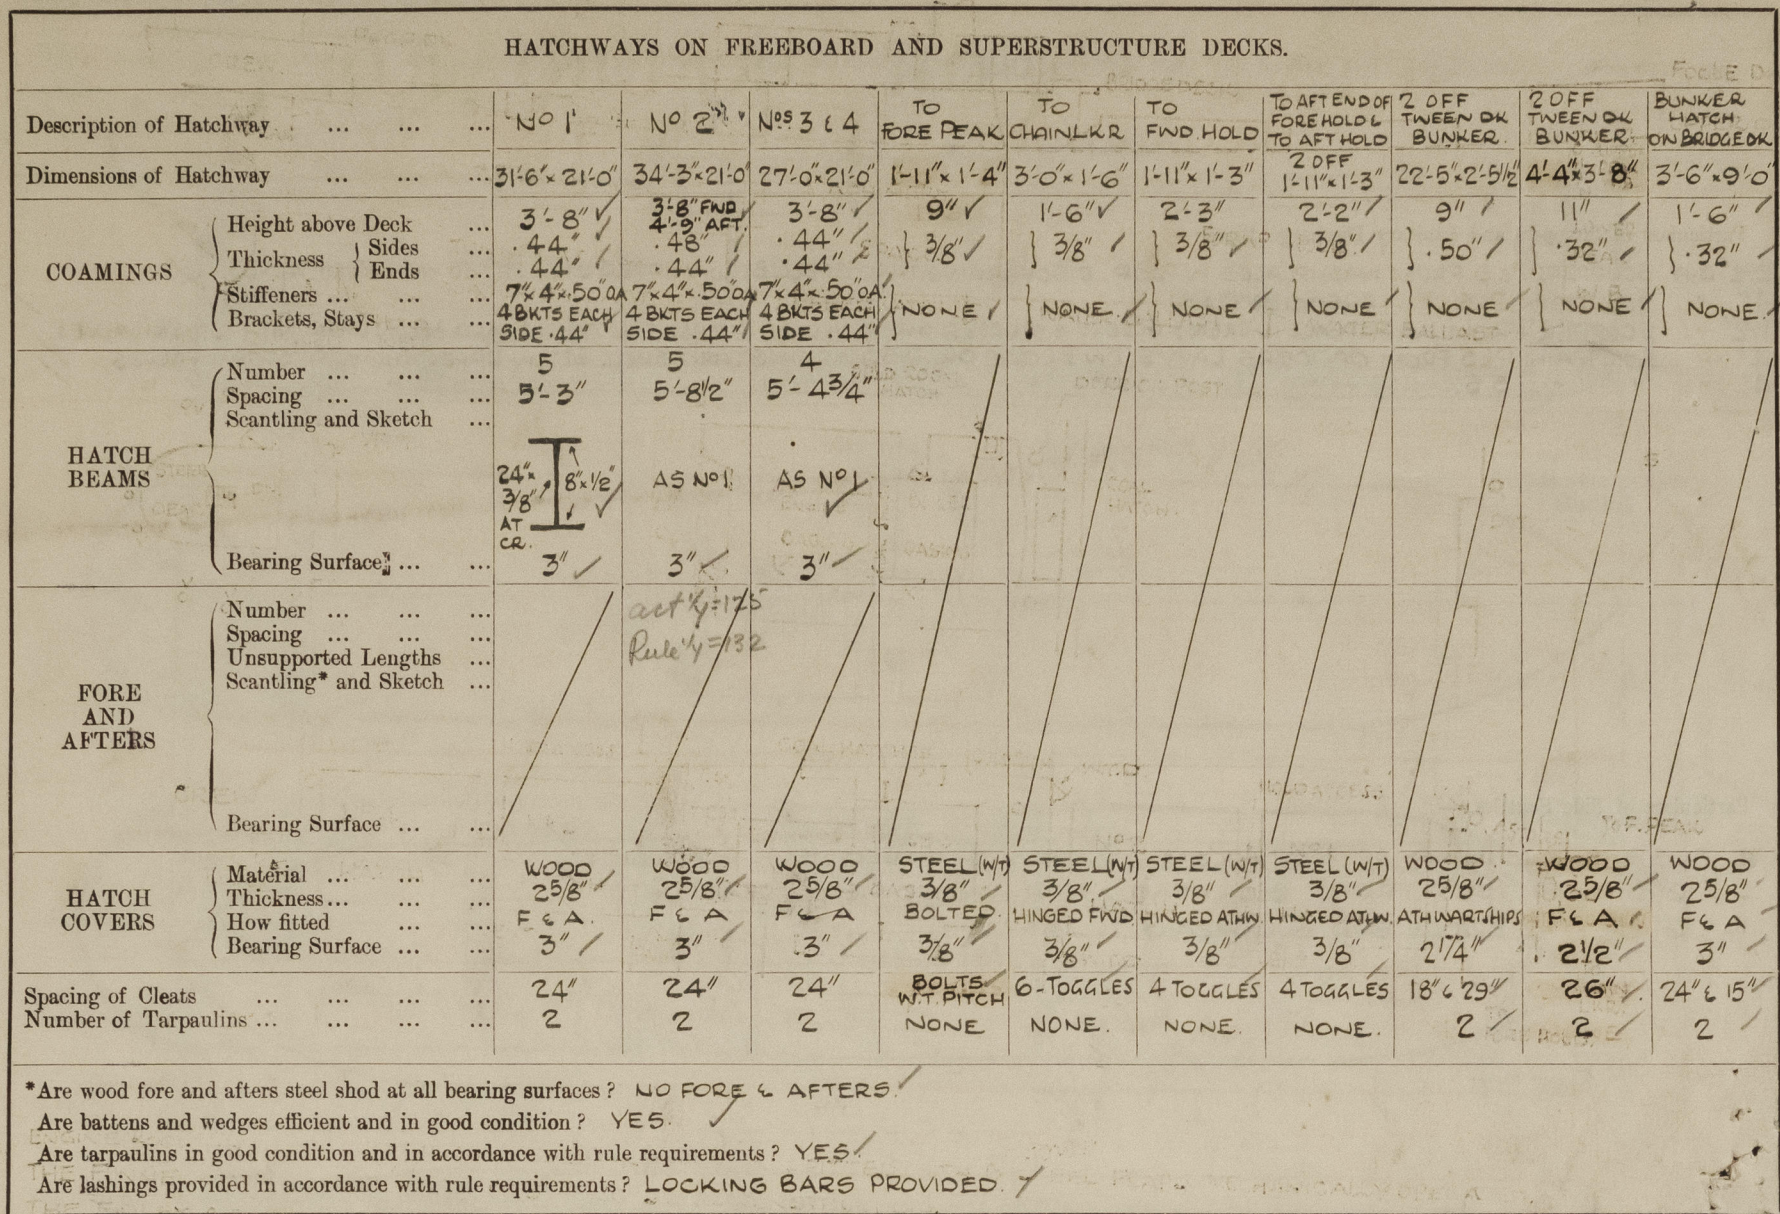 HATCHWAYS ON FREEBOARD AND SUPERSTRUCTURE DECKS.
Description of Hatchway ... ... ... No 1 No 2 Nos 3 & 4 TO FORE PEAK TO CHAIN LKR TO FWD. HOLD TO AFT END OF FOREHOLD & TO AFT HOLD 2 OFF TWEEN DK BUNKER. 2 OFF TWEEN DK BUNKER BUNKER HATCH ON BRIDGE DK
Dimensions of Hatchway ... ... ... 31'-6"x21'-0" 34'-3"x21'-0" 27'-0"x21'-0" 1'-11"x1'-4" 3'-0"x1'-6" 1'-11"x1'-3" 2 OFF 1'-11"x1'-3" 22'-5"x2'-5½" 4'-4"x3'-8" 3'-6"x9'-0"
COAMINGS
Height above Deck ... 3'-8" ✓ 3'-8" FWD 4'-9" AFT. 3'-8" ✓ 9" ✓ 1'-6" ✓ 2'-3" 2'-2" ✓ 9" ✓ 11" ✓ 1'-6" ✓
Thickness { Sides ... .44" ✓ .48" ✓ .44" ✓ } 3/8" ✓ } 3/8" ✓ } 3/8" ✓ } 3/8" ✓ } .50" ✓ } .32" ✓ } .32" ✓
Ends ... .44" ✓ .44" ✓ .44" ✓
Stiffeners ... ... ... 7"x4"x.50" OA 7"x4"x.50" OA 7"x4"x.50" OA
Brackets, Stays ... ... 4 BKTS EACH SIDE .44" ✓ 4 BKTS EACH SIDE .44" ✓ 4 BKTS EACH SIDE .44" } NONE ✓ } NONE. ✓ } NONE ✓ } NONE ✓ } NONE ✓ } NONE ✓ } NONE. ✓
HATCH BEAMS
Number ... ... ... 5 5 4
Spacing ... ... ... 5'-3" 5'-8½" 5'-4¾"
Scantling and Sketch ...
24"x 3/8" AT CR. 8"x½" ✓ AS No 1 AS No 1 ✓
Bearing Surface ... ... 3" ✓ 3" ✓ 3" ✓
FORE AND AFTERS
Number ... ... ... act 1/y=125
Spacing ... ... ... Rule 1/y=132
Unsupported Lengths ...
Scantling* and Sketch ...
Bearing Surface ... ...
HATCH COVERS
Material ... ... ... WOOD WOOD WOOD STEEL (W/T) STEEL (W/T) STEEL (W/T) STEEL (W/T) WOOD WOOD WOOD
Thickness ... ... ... 2 5/8" ✓ 2 5/8" ✓ 2 5/8" ✓ 3/8" ✓ 3/8" ✓ 3/8" ✓ 3/8" ✓ 2 5/8" ✓ 2 5/8" ✓ 2 5/8"
How fitted ... ... F & A. F & A F & A BOLTED HINGED FWD HINGED ATHW. HINGED ATHW. ATHWARTSHIPS F & A F & A
Bearing Surface ... ... 3" ✓ 3" ✓ 3" ✓ 3/8" ✓ 3/8" ✓ 3/8" ✓ 3/8" ✓ 2¼" ✓ 2½" ✓ 3" ✓
Spacing of Cleats ... ... ... ... 24" 24" 24" BOLTS W.T. PITCH 6-TOGGLES 4 TOGGLES 4 TOGGLES 18" & 29" ✓ 26" ✓ 24" & 15" ✓
Number of Tarpaulins ... ... ... ... 2 2 2 NONE NONE. NONE. NONE. 2 ✓ 2 ✓ 2 ✓
*Are wood fore and afters steel shod at all bearing surfaces? NO FORE & AFTERS. ✓
Are battens and wedges efficient and in good condition? YES. ✓
Are tarpaulins in good condition and in accordance with rule requirements? YES ✓
Are lashings provided in accordance with rule requirements? LOCKING BARS PROVIDED. ✓